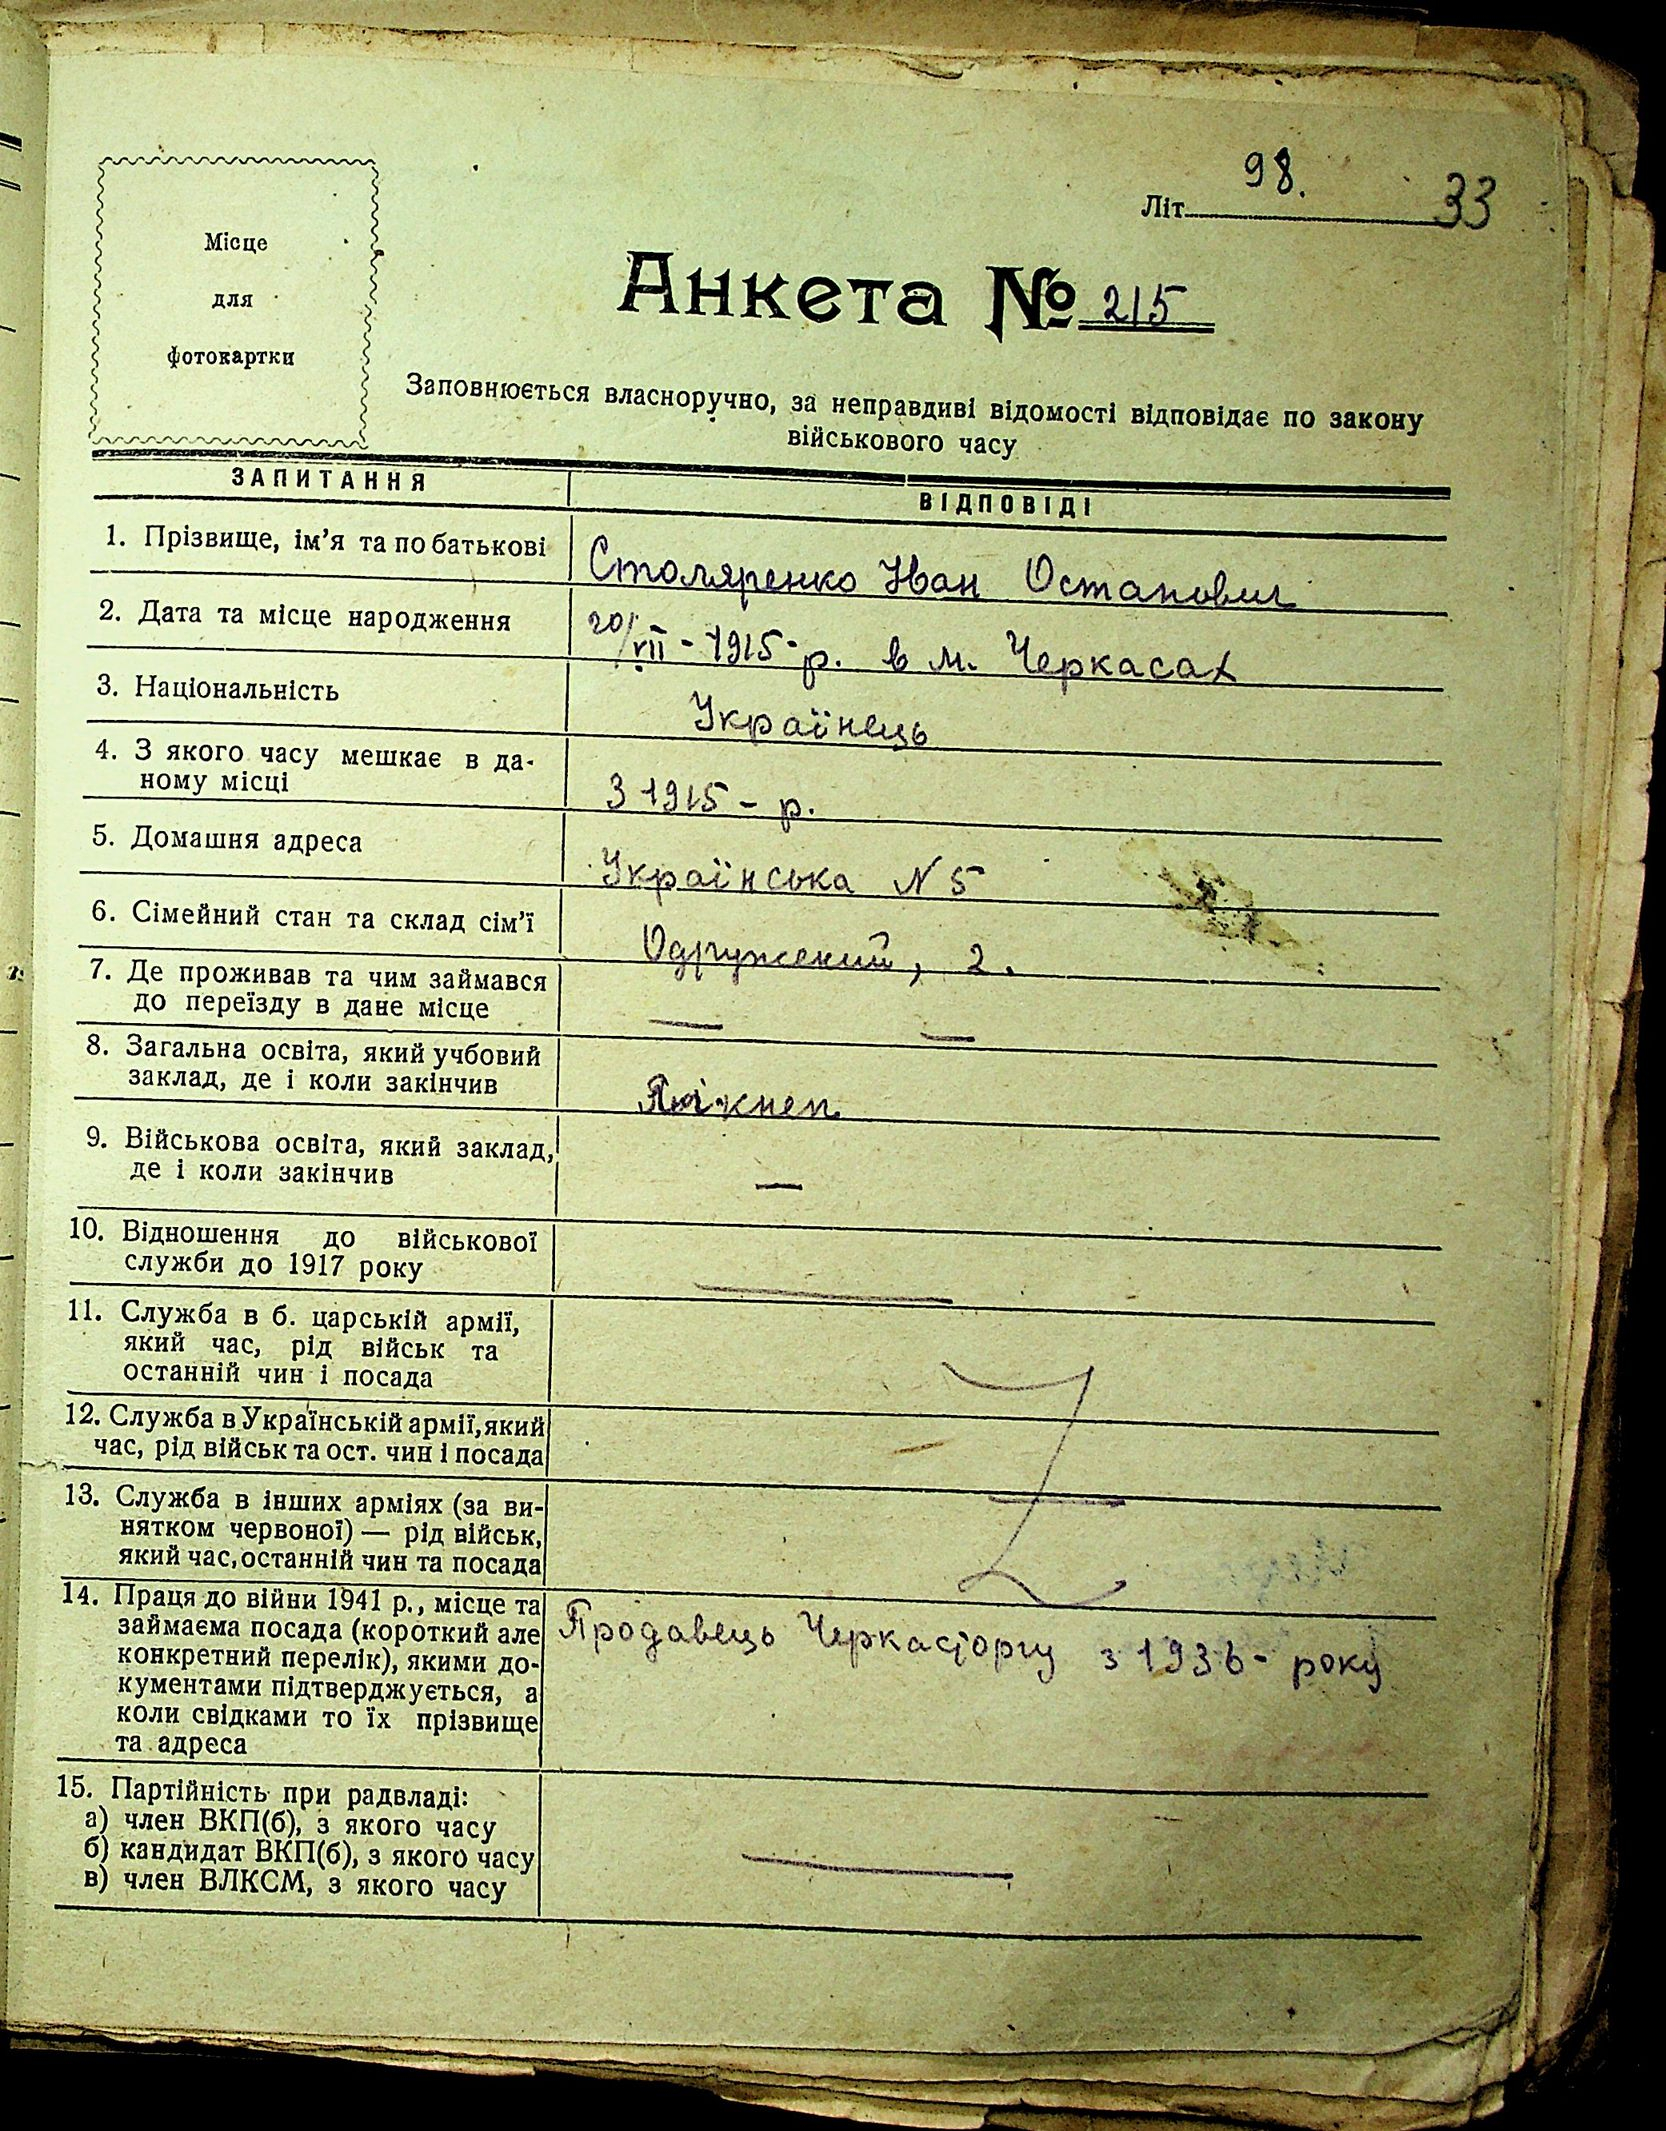 98.
Літ. 33
Місце
для
фотокартки
Анкета № 215
Заповнюється власноручно, за неправдиві відомості відповідає по закону
військового часу
ЗАПИТАННЯ
ВІДПОВІДІ
1. Прізвище, ім'я та по батькові
Столяренко Іван Остапович
2. Дата та місце народження
20/VII - 1915 - р. в м. Черкасах
3. Національність
Українець
4. З якого часу мешкає в да-
ному місці
З 1915 - р.
5. Домашня адреса
Українська N 5
6. Сімейний стан та склад сім'ї
Одружений, 2.
7. Де проживав та чим займався
до переїзду в дане місце
— —
8. Загальна освіта, який учбовий
заклад, де і коли закінчив
9. Військова освіта, який заклад,
де і коли закінчив
—
10. Відношення до військової
служби до 1917 року
—
11. Служба в б. царській армії,
який час, рід військ та
останній чин і посада
12. Служба в Українській армії, який
час, рід військ та ост. чин і посада
13. Служба в інших арміях (за ви-
нятком червоної) — рід військ,
який час, останній чин та посада
14. Праця до війни 1941 р., місце та
займаєма посада (короткий але
конкретний перелік), якими до-
кументами підтверджується, а
коли свідками то їх прізвище
та адреса
Продавець Черкасторгу з 1936 - року
15. Партійність при радвладі:
а) член ВКП(б), з якого часу
б) кандидат ВКП(б), з якого часу
в) член ВЛКСМ, з якого часу
—